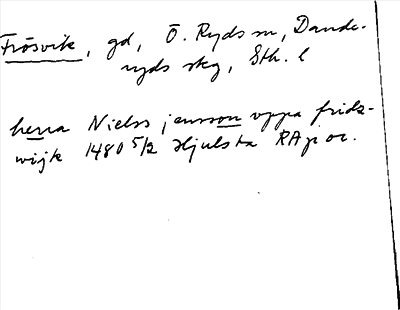 Frösvik, gd, Ö. Ryds sn, Dande-
ryds skg, Sth. l
herra Nielss jensson vppa fridz-
wijk 1480 5/2 Hjulsta RAp or.